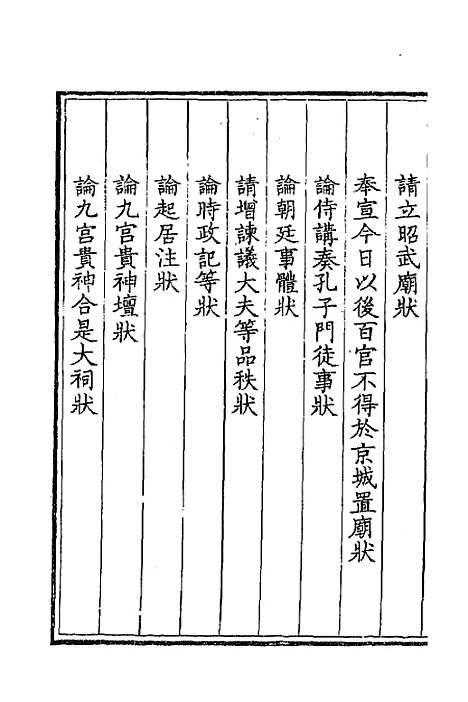 請立昭武廟狀
奉宣今日以後百官不得於京城置廟狀
論侍講奏孔子門徒事狀
論朝廷事體狀
請增諫議大夫等品秩狀
論時政記等狀
論起居注狀
論九宮貴神壇狀
論九宮貴神合是大祠狀